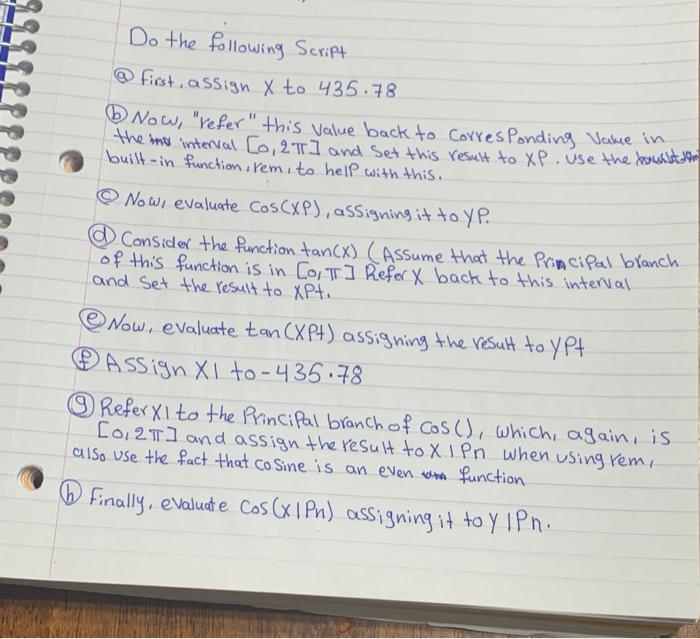 Do the following Script
ⓐ first, assign X to 435.78
ⓑ Now, "refer" this value back to Corresponding Value in
the interval [0,2π] and Set this result to XP. Use the
built-in function, rem, to help with this.
ⓒ Now, evaluate Cos(XP), assigning it to YP.
ⓓ Consider the function tan(x) (Assume that the Principal branch
of this function is in [0,π] Refer X back to this interval
and Set the result to XPt.
ⓔ Now, evaluate tan(XPt) assigning the result to YPt
ⓕ Assign X1 to -435.78
ⓖ Refer X1 to the Principal branch of cos(), which, again, is
[0,2π] and assign the result to X1Pn when using rem,
also use the fact that cosine is an even function
ⓗ Finally, evaluate Cos(X1Pn) assigning it to Y1Pn.